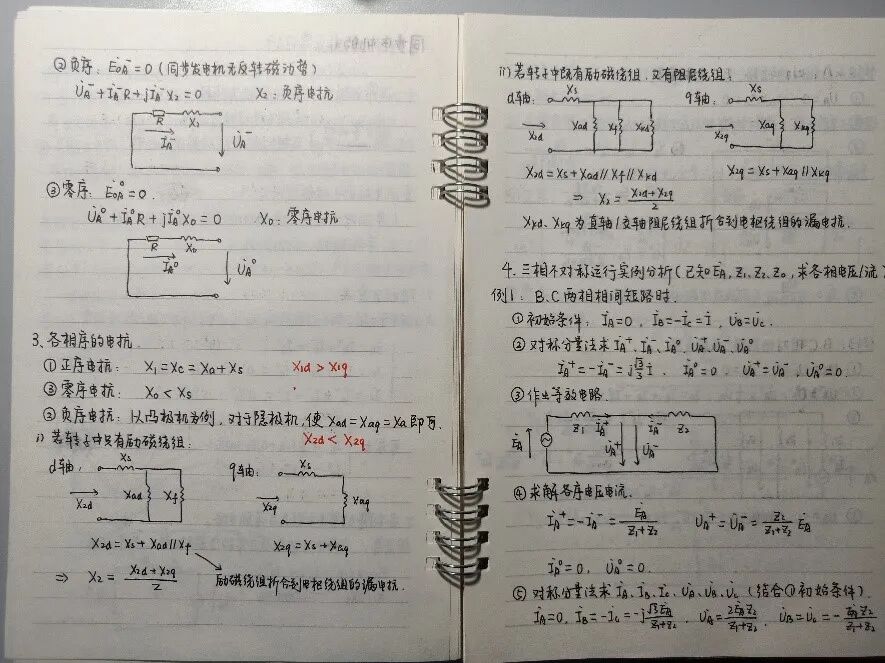 ②负序: Ė₀ₐ⁻ = 0 (同步发电机无反转磁动势)
U̇ₐ⁻ + İₐ⁻R + jİₐ⁻X₂ = 0   X₂: 负序电抗
R X₂
İₐ⁻ U̇ₐ⁻
③零序: Ė₀ₐ⁰ = 0.
U̇ₐ⁰ + İₐ⁰R + jİₐ⁰X₀ = 0   X₀: 零序电抗
R X₀
İₐ⁰ U̇ₐ⁰
3. 各相序的电抗
①正序电抗: X₁ = Xc = Xa + Xs   X1d > X1q
③零序电抗: X₀ < Xs
②负序电抗: 以凸极机为例, 对于隐极机, 使 Xad = Xaq = Xa 即可.
i) 若转子中只有励磁绕组:   X2d < X2q
d轴: Xs   q轴: Xs
X2d Xad Xf   X2q Xaq
X2d = Xs + Xad // Xf   X2q = Xs + Xaq
⇒ X₂ = (X2d + X2q)/2   励磁绕组折合到电枢绕组的漏电抗.
ii) 若转子中既有励磁绕组, 又有阻尼绕组:
d轴: Xs   q轴: Xs
X2d Xad Xf Xkd   X2q Xaq Xkq
X2d = Xs + Xad // Xf // Xkd   X2q = Xs + Xaq // Xkq
⇒ X₂ = (X2d + X2q)/2
Xkd、Xkq 为直轴/交轴阻尼绕组折合到电枢绕组的漏电抗.
4. 三相不对称运行实例分析 (已知Ėₐ, Z₁、Z₂、Z₀, 求各相电压/流)
例1: B、C两相相间短路时.
①初始条件: İA = 0, İB = -İC = İ, U̇B = U̇C.
②对称分量法求 İA⁺、İA⁻、İA⁰、U̇A⁺、U̇A⁻、U̇A⁰
İA⁺ = -İA⁻ = j(√3/3)İ, İA⁰ = 0   U̇A⁺ = U̇A⁻, U̇A⁰ = 0.
③作出等效电路
Z₁ İA⁺ İA⁻ Z₂
ĖA U̇A⁺ U̇A⁻
④求解各序电压电流.
İA⁺ = -İA⁻ = ĖA/(Z₁+Z₂)   U̇A⁺ = U̇A⁻ = Z₂/(Z₁+Z₂) ĖA
İA⁰ = 0, U̇A⁰ = 0.
⑤对称分量法求 İA、İB、İC、U̇A、U̇B、U̇C (结合①初始条件)
İA = 0, İB = -İC = -j√3ĖA/(Z₁+Z₂), U̇A = 2ĖAZ₂/(Z₁+Z₂), U̇B = U̇C = -ĖAZ₂/(Z₁+Z₂)